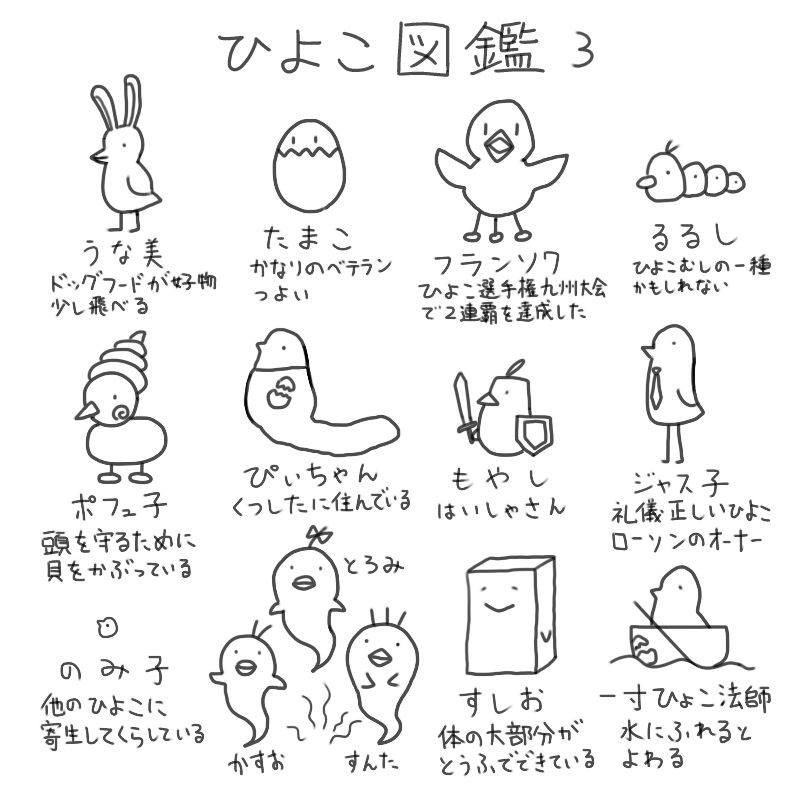 ひよこ図鑑3
うな美
ドッグフードが好物
少し飛べる
たまこ
かなりのベテラン
つよい
フランソワ
ひよこ選手権九州大会
で2連覇を達成した
るるし
ひよこむしの一種
かもしれない
ポフュ子
頭を守るために
貝をかぶっている
ぴぃちゃん
くつしたに住んでいる
もやし
はいしゃさん
ジャス子
礼儀正しいひよこ
ローソンのオーナー
のみ子
他のひよこに
寄生してくらしている
とろみ
かすお
すんた
すしお
体の大部分が
とうふでできている
一寸ひょこ法師
水にふれると
よわる